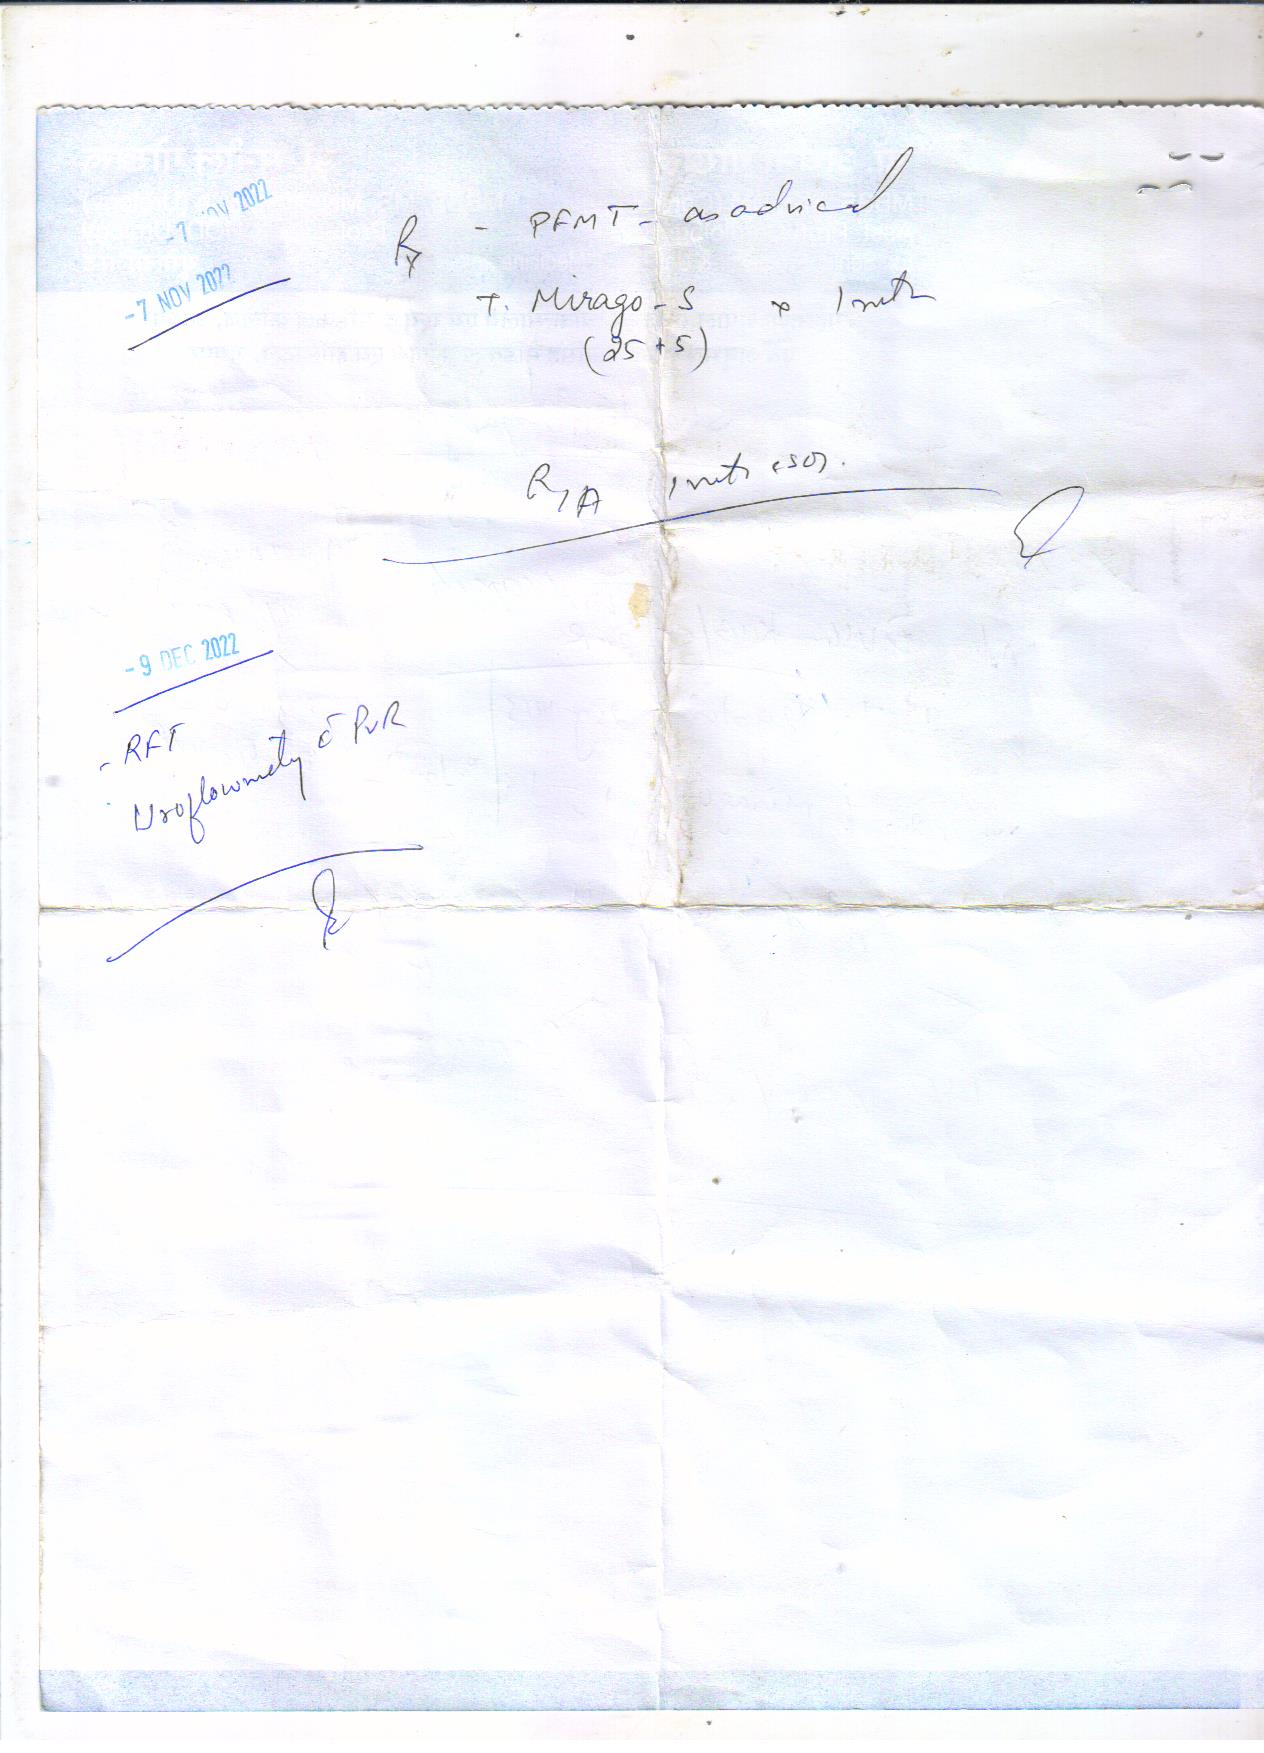 -7 NOV 2022
-7 NOV 2022
Rx - PFMT - as advised
T. Mirago-S x 1 mth
(25+5)
R/A 1 mth SOS.
-9 DEC 2022
- RFT
- Uroflowmetry c̄ PVR